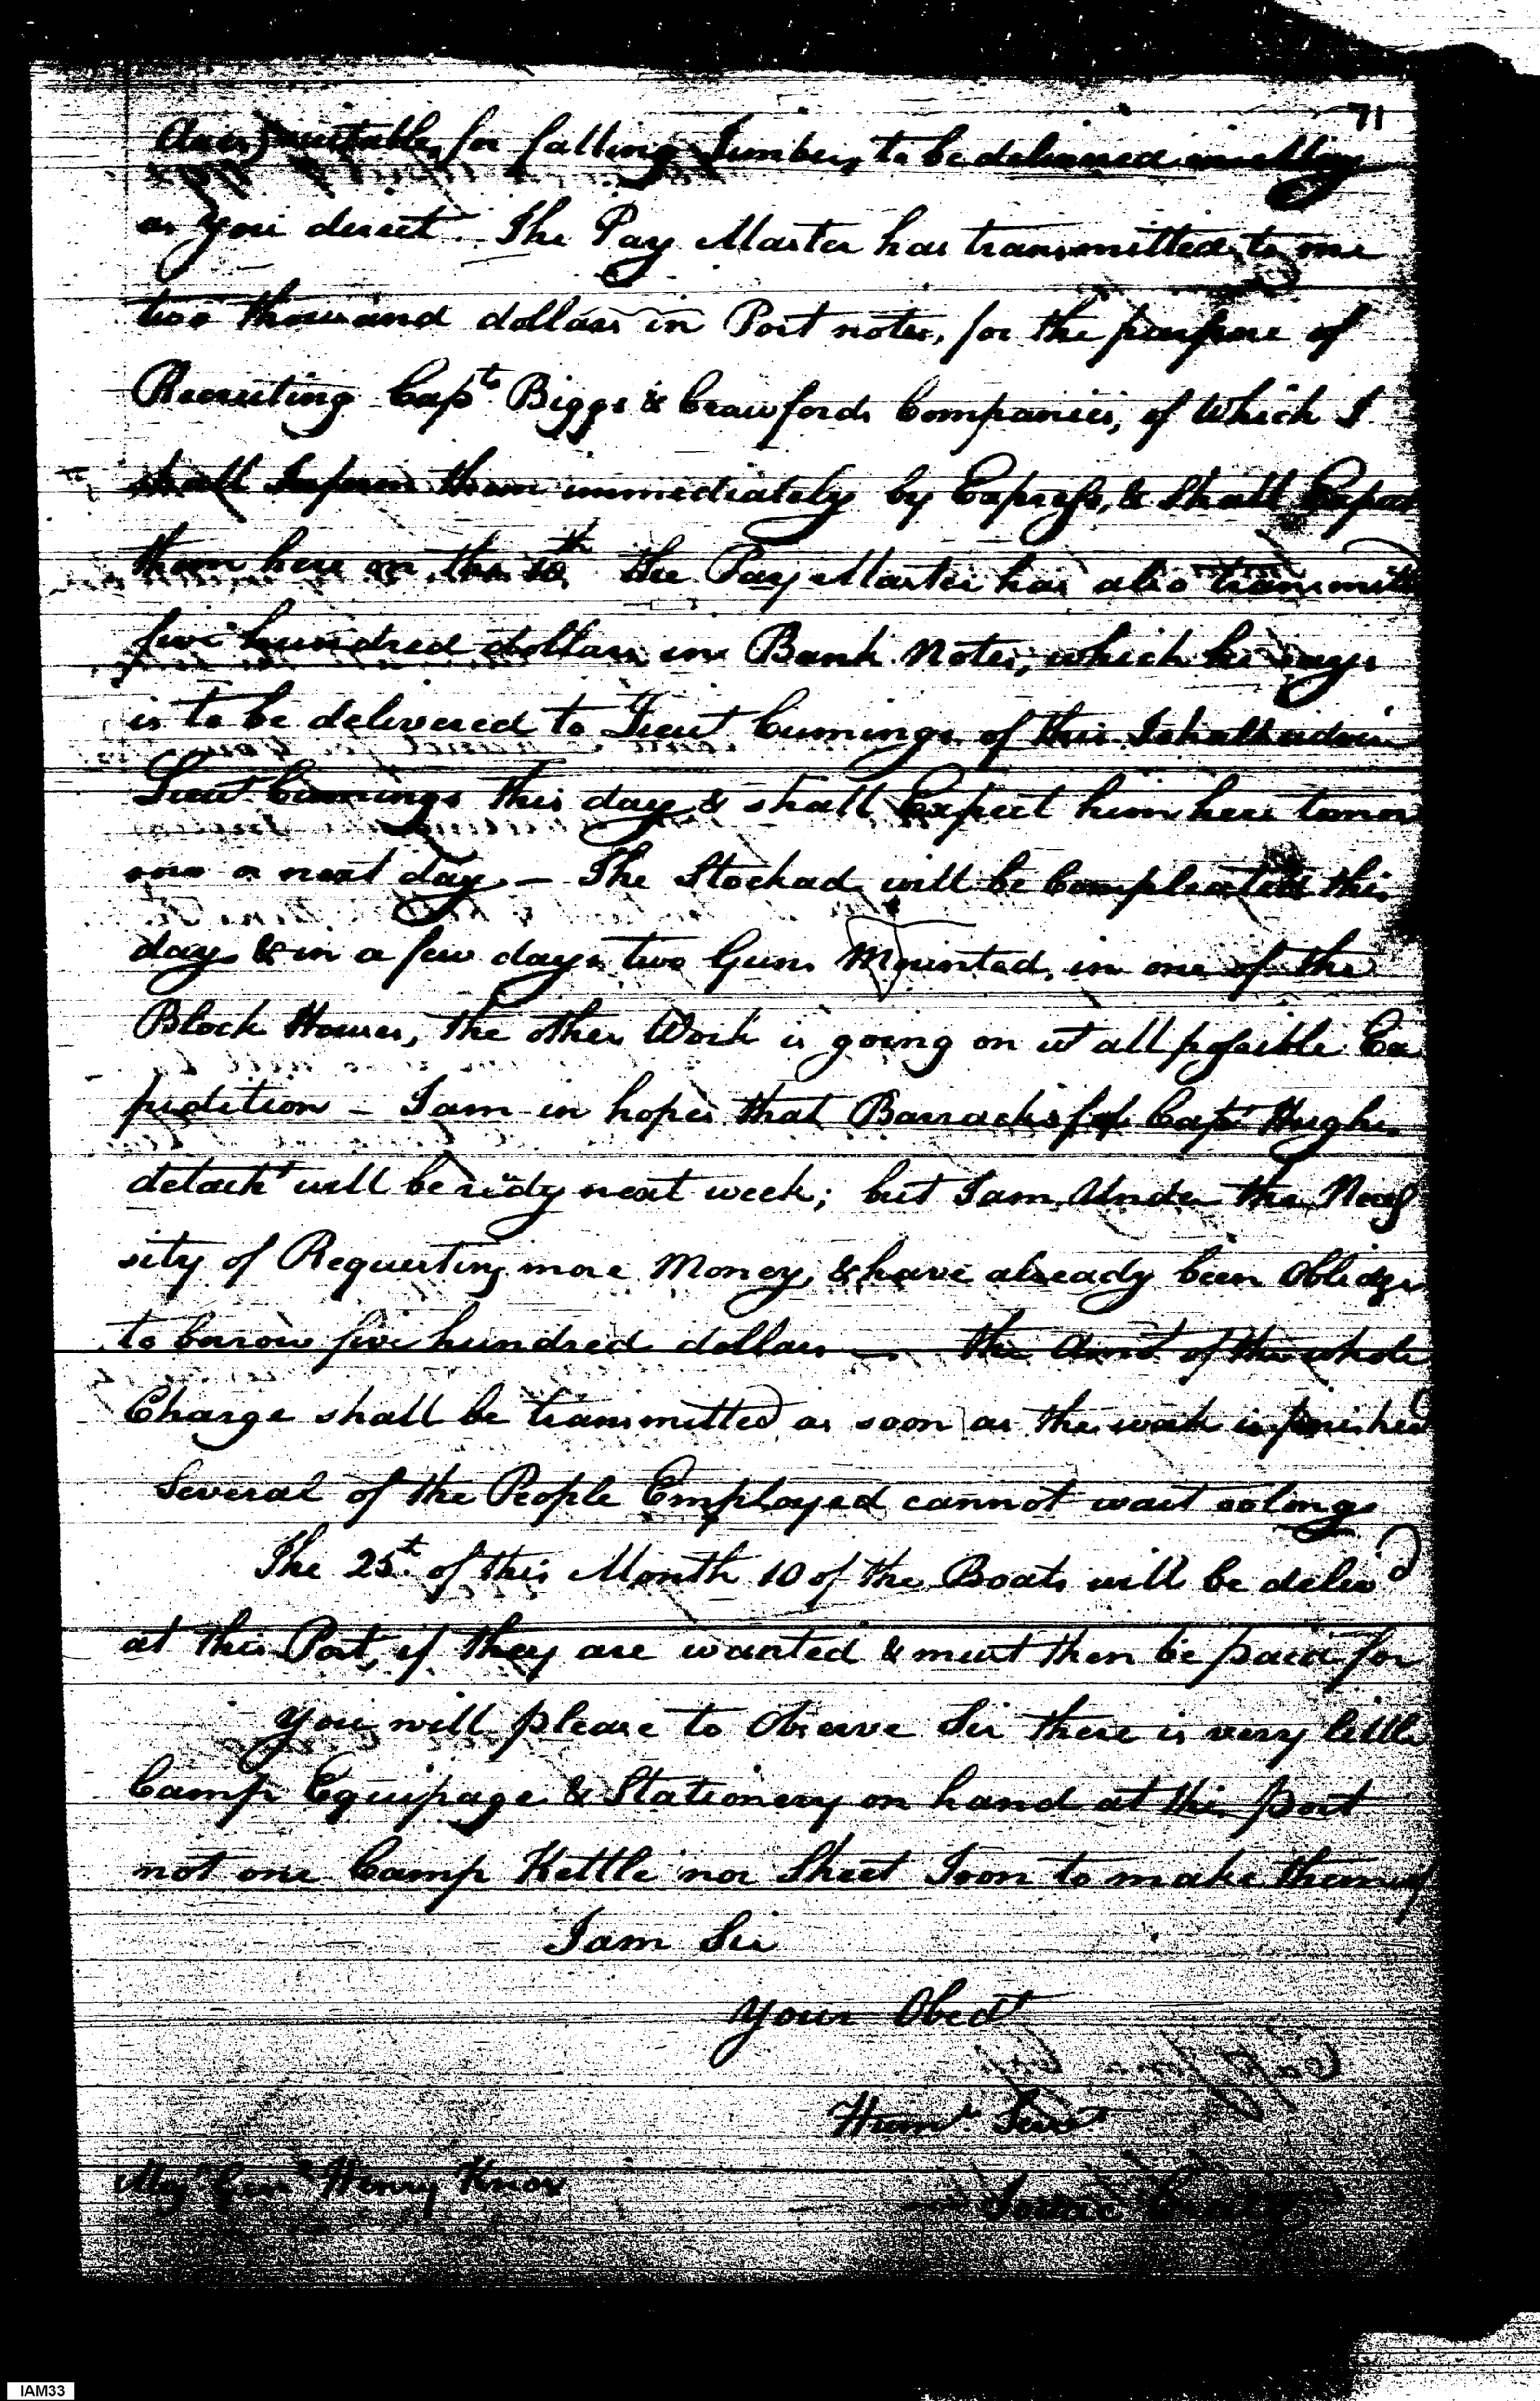 71
Axes, suitable for falling Timber, to be delivered
as you direct. The Pay Master has transmitted to me
two thousand dollars in Post notes, for the purpose of
Recruiting Capts. Biggs & Crawfords Companies, of Which I
shall Inform them immediately by Express, & Shall Expect
them here on the 10th. The Pay Master has also transmitt
five hundred dollars in Bank Notes, which he says
is to be delivered to Lieut Cumings of this I shall advise
Lieut Cumings this day & shall Expect him here tomor
row or next day — The Stockad will be Compleated this
day & in a few days two Guns Mounted, in one of the
Block Houses, the other Work is going on wt all possible Ex
pidition — I am in hopes that Barracks for Capt Hughes
detacht will be ridy next week; but I am Under the Neces
sity of Requesting more Money, & have already been Oblidge
to borrow five hundred dollars — the Amt. of the whole
Charge shall be transmitted as soon as the work is finished
Several of the People Employed cannot wait so long
The 25th. of this Month 10 of the Boats will be deliv'd
at this Post, if they are wanted & must then be paid for
You will please to Observe Sir there is very little
Camp Equipage & Stationery on hand at this post
not one Camp Kettle nor Sheet Iron to make them of
I am Sir
Your Obedt
Humle. Servt.
Isaac Craig
Maj Genl Henry Knox
IAM33